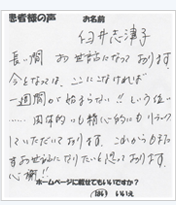 患者様の声 お名前
臼井志津子
長い間 お世話になって おります。
今となっては、ここにこなければ
一週間が始まらない!! という位
……肉体的にも精神的にも リラック
していただいて おります。これからもます
ますお世話になりたいと思って おります。
心齋!!
ホームページに載せてもいいですか?